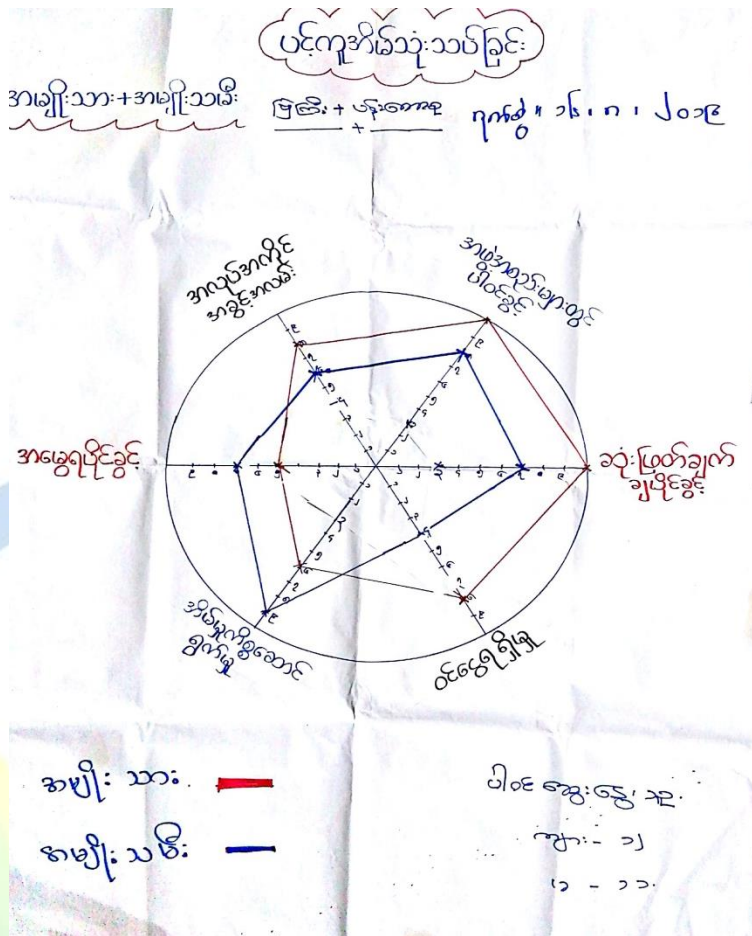 ပင့်ကူအိမ်သုံးသပ်ခြင်း
အမျိုးသား+အမျိုးသမီး
မြို့ကြီး + ပန်းတောရ
+
ရက်စွဲ ။ ၁၆ ၊ ၈ ၊ ၂၀၁၉
အလုပ်အကိုင်
အခွင့်အလမ်း
အဖွဲ့အစည်းများတွင်
ပါဝင်ခွင့်
အမွေရပိုင်ခွင့်
ဆုံးဖြတ်ချက်
ချပိုင်ခွင့်
အိမ်မှုကိစ္စဆောင်
ရွက်မှု
ဝင်ငွေရရှိမှု
အမျိုး သား
အမျိုး သမီး
ပါဝင် ဆွေးနွေး သူ
ကျား - ၁၂
မ - ၁၁